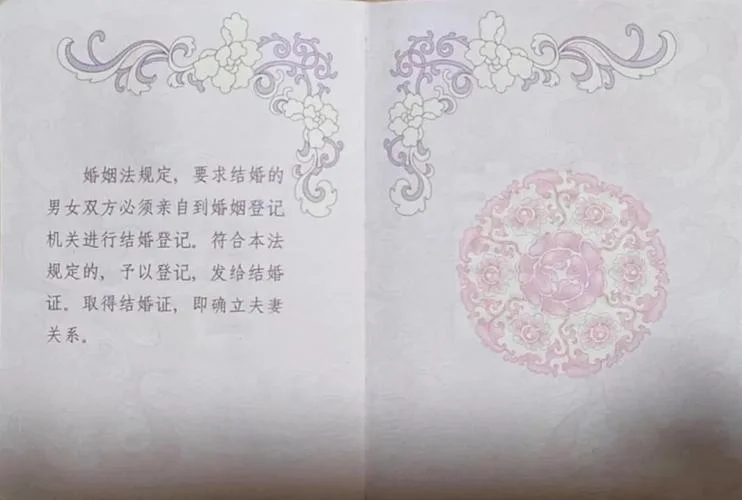 婚姻法规定，要求结婚的
男女双方必须亲自到婚姻登记
机关进行结婚登记。符合本法
规定的，予以登记，发给结婚
证。取得结婚证，即确立夫妻
关系。